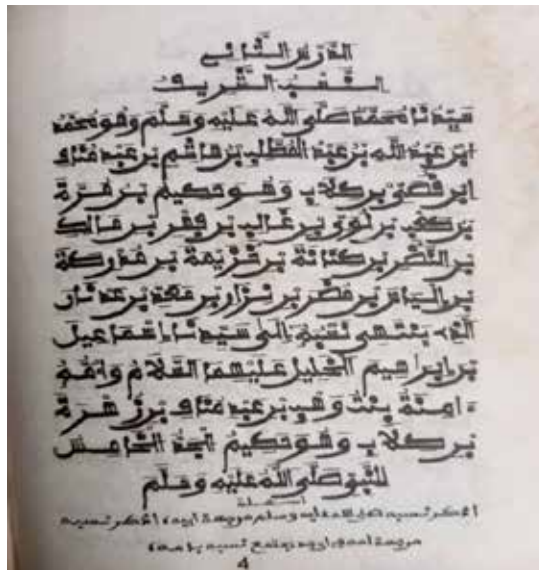 الدرس الثاني
النسب الشريف
سيدنا محمد صلى الله عليه وسلم وهو محمد
ابن عبد الله بن عبد المطلب بن هاشم بن عبد مناف
ابن قصي بن كلاب وهو حكيم بن مرة
بن كعب بن لؤي بن غالب بن فهر بن مالك
بن النضر بن كنانة بن خزيمة بن مدركة
بن إلياس بن مضر بن نزار بن معد بن عدنان
الذي ينتهي نسبه إلى سيدنا إسماعيل
بن إبراهيم الخليل عليهما السلام وأمه
ءامنة بنت وهب بن عبد مناف بن زهرة
بن كلاب وهو حكيم الجد الخامس
للنبي صلى الله عليه وسلم
أسئلة
اذكر نسبه صلى الله عليه وسلم من جهة أبيه، اذكر نسبه
من جهة أمه، أين يجتمع نسبه
4